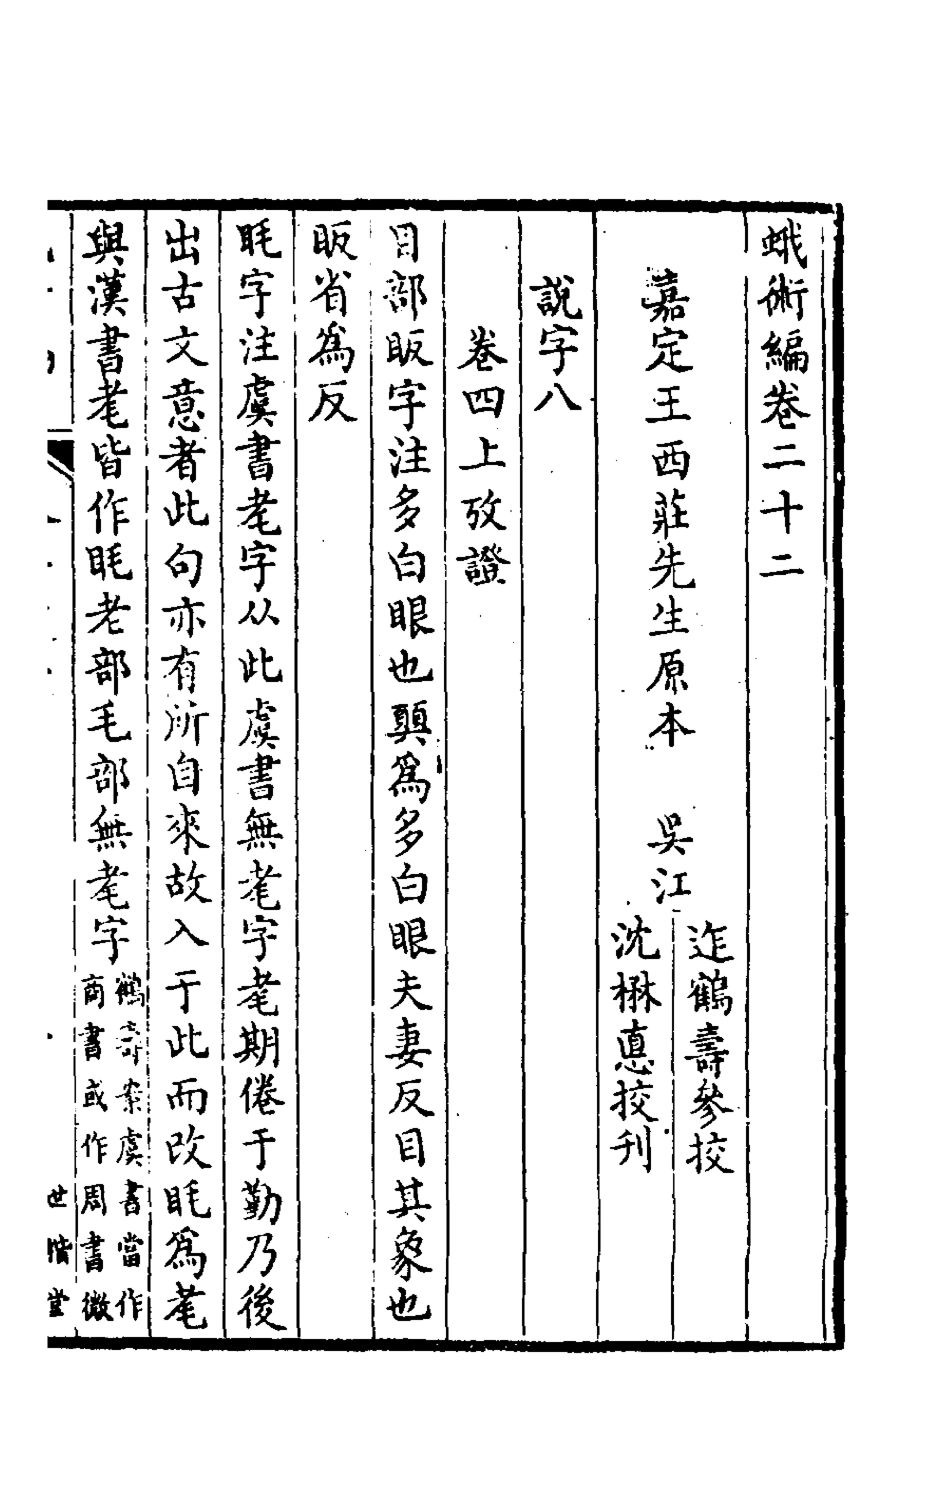 蛾術編卷二十二
嘉定王西莊先生原本　吳江
迮鶴壽參挍
沈楙悳挍刊
說字八
卷四上攷證
目部眅字注多白眼也顨爲多白眼夫妻反目其象也
眅省爲反
眊字注虞書耄字从此虞書無耄字耄期倦于勤乃後
出古文意者此句亦有所自來故入于此而改眊爲耄
與漢書耄皆作眊老部毛部無耄字
鶴壽案虞書當作
商書或作周書微
世楷堂